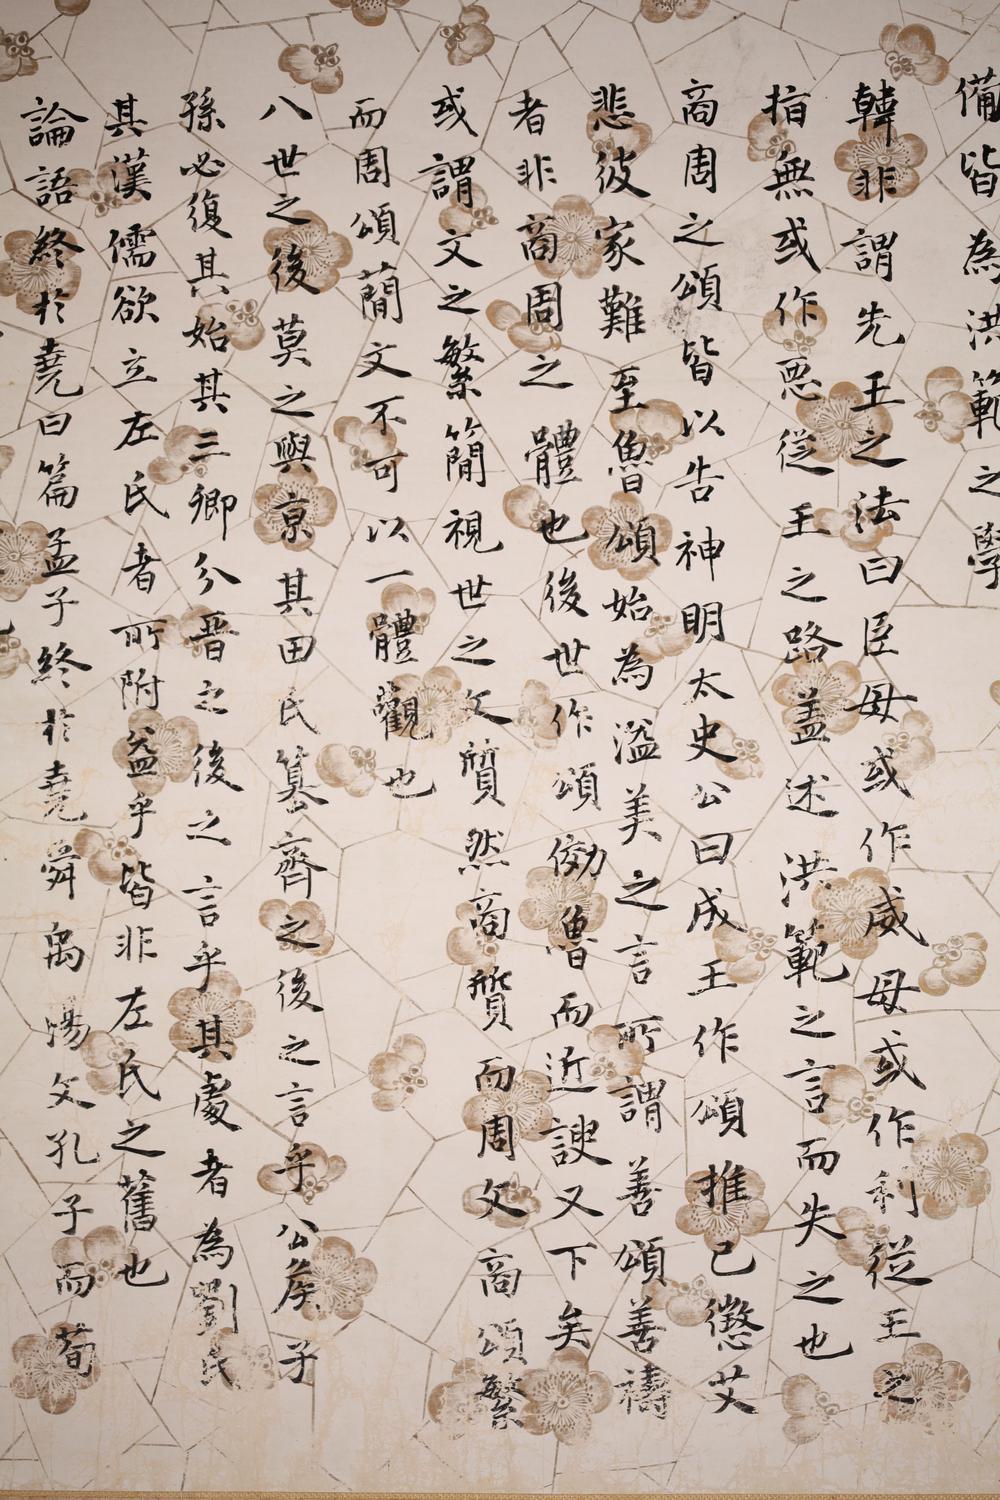 備皆為洪範之學
韓非謂先王之法曰臣毋或作威毋或作利從王之
指無或作惡從王之路蓋述洪範之言而失之也
商周之頌皆以告神明太史公曰成王作頌推己懲艾
悲彼家難至魯頌始為溢美之言所謂善頌善禱
者非商周之體也後世作頌傚魯而近諛又下矣
或謂文之繁簡視世之文質然商質而周文商頌繁
而周頌蕳文不可以一體觀也
八世之後莫之與京其田氏篡齊之後之言乎公矦子
孫必復其始其三卿分晋之後之言乎其處者為劉氏
其漢儒欲立左氏者所附益乎皆非左氏之舊也
論語終於堯曰篇孟子終於堯舜禹湯文孔子而荀